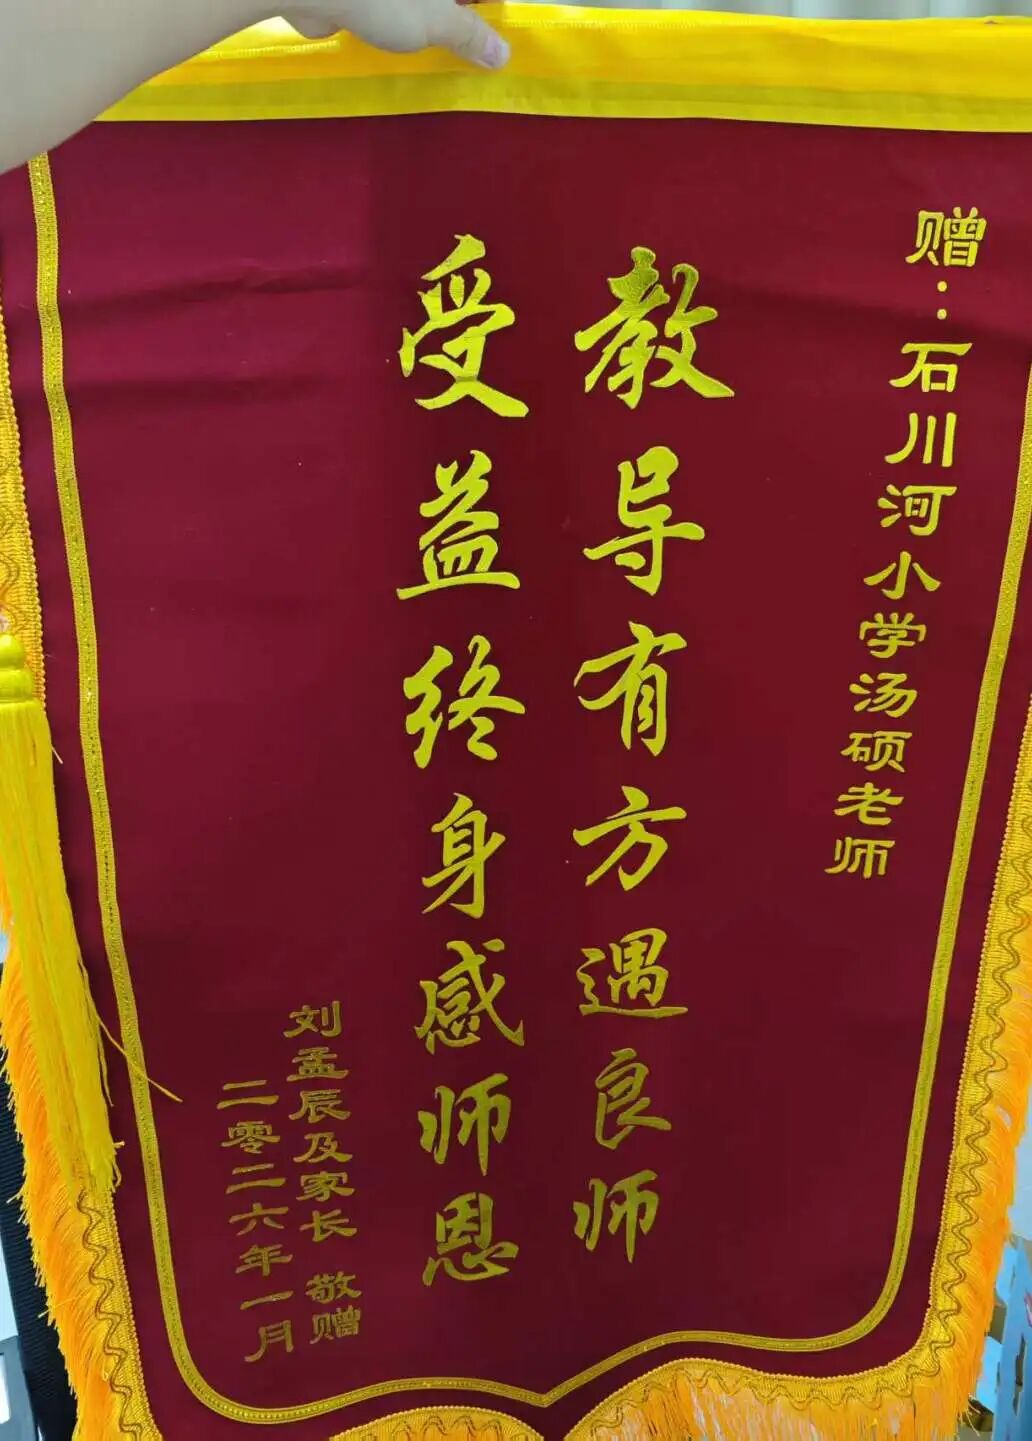 赠：石川河小学汤硕老师
教导有方遇良师
受益终身感师恩
刘孟辰及家长 敬赠
二零二六年一月